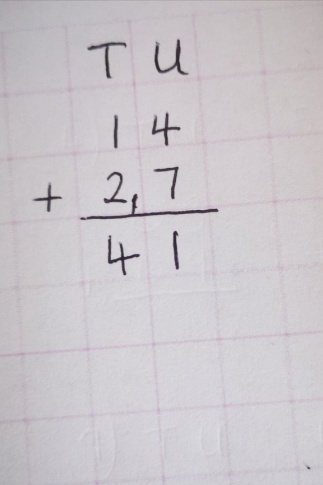 T U
1 4
+ 2,7
4 1